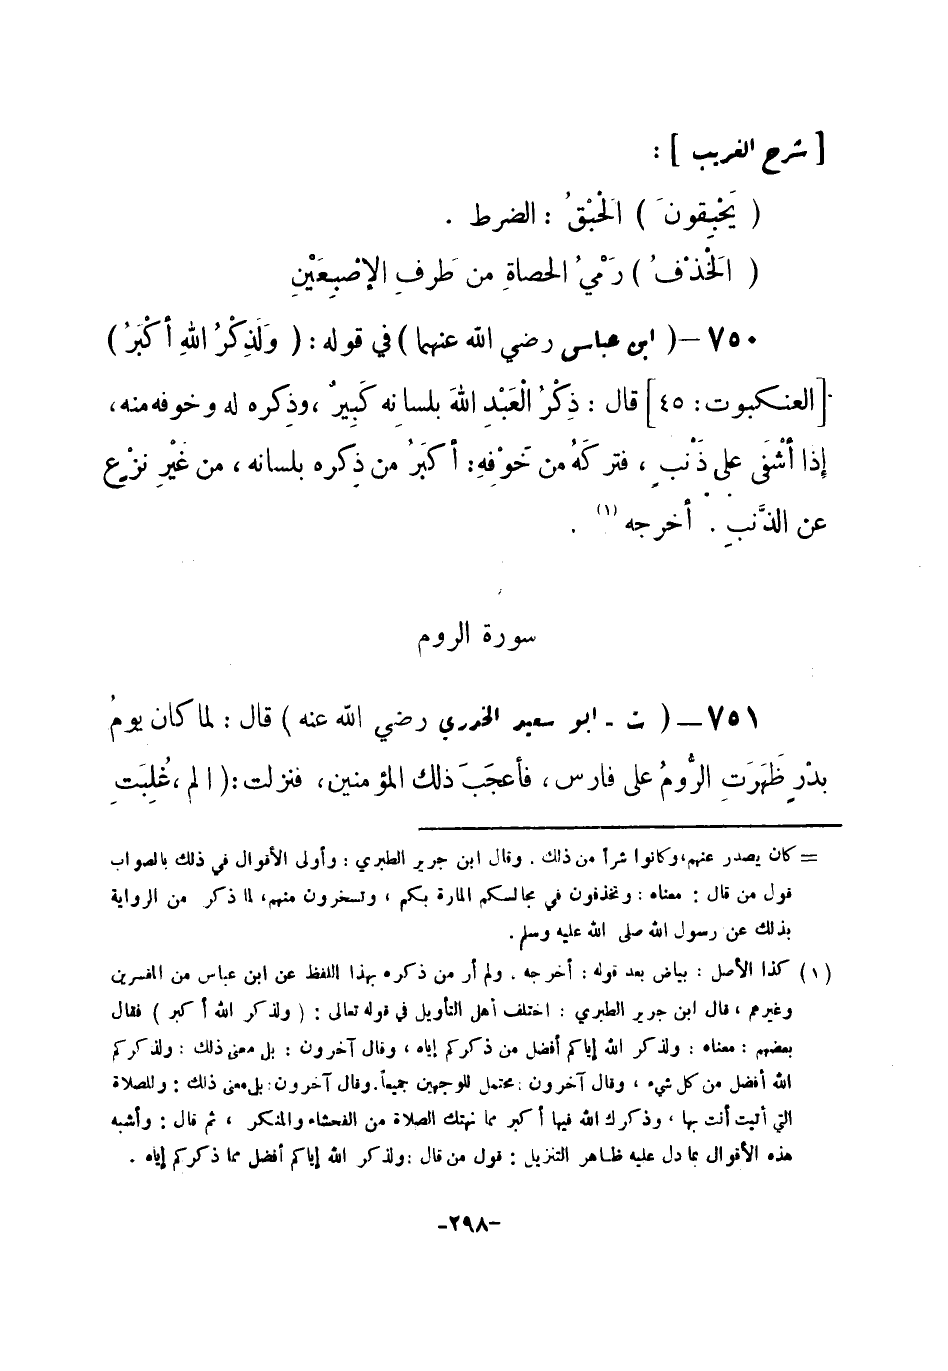 [ شرح الغريب ] :
( يَحْبِقون َ ) الحَبْقُ : الضرط .
( الخَذْفُ ) رَمْيُ الحصاةِ من طَرفِ الإصْبِعَيْنِ
٧٥٠ – ( ابن عباس رضي الله عنهما ) في قوله : ( وَلَذِكْرُ اللهِ أكْبَرُ )
[ العنكبوت : ٤٥ ] قال : ذِكْرُ الْعَبْدِ اللهَ بلسانه كَبِيرٌ ، وذِكره له وخوفه منه ،
إذا أشْفَى على ذَنْبٍ ، فتركَهُ من خَوْفِهِ : أكبَرُ من ذِكره بلسانه ، من غَيْرِ نزْعٍ
عن الذَّنبِ . أخرجه (١) .
سورة الروم
٧٥١ – ( ت - ابو سعيد الخدري رضي الله عنه ) قال : لما كان يومُ
بدْرٍ ظَهَرَتِ الرُّومُ على فارس ، فأعجَبَ ذلك المؤمنين ، فنزلت : ( الم ، غُلِبَتِ
= كان يصدر عنهم، وكانوا شراً من ذلك . وقال ابن جرير الطبري : وأولى الأقوال في ذلك بالصواب
قول من قال : معناه : وتخذفون في مجالسكم المارة بكم ، وتسخرون منهم، لما ذكر من الرواية
بذلك عن رسول الله صلى الله عليه وسلم .
(١) كذا الأصل : بياض بعد قوله : أخرجه . ولم أر من ذكره بهذا اللفظ عن ابن عباس من المفسرين
وغيرهم ، قال ابن جرير الطبري : اختلف أهل التأويل في قوله تعالى : ( ولذكر الله أكبر ) فقال
بعضهم : معناه : ولذكر الله إياكم أفضل من ذكركم إياه ، وقال آخرون : بل معنى ذلك : ولذكركم
الله أفضل من كل شيء ، وقال آخرون : محتمل للوجهين جميعاً. وقال آخرون: بل معنى ذلك : وللصلاة
التي أتيت أنت بها ، وذكرك الله فيها أكبر مما نهتك الصلاة من الفحشاء والمنكر ، ثم قال : وأشبه
هذه الأقوال بما دل عليه ظاهر التنزيل : قول من قال : ولذكر الله إياكم أفضل مما ذكركم إياه .
-٢٩٨-